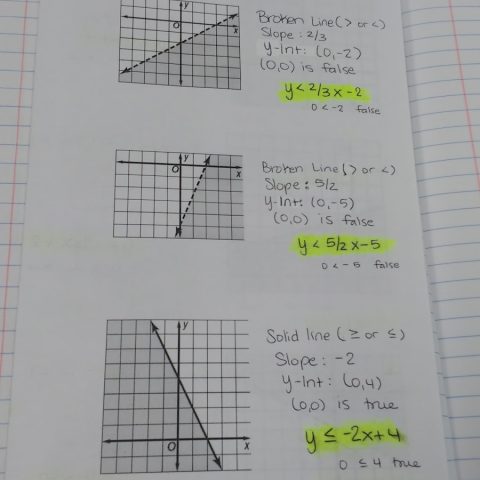 y
O
x
Broken Line (> or <)
Slope: 2/3
y-Int: (0,-2)
(0,0) is false
y < 2/3 x - 2
0 < -2 false
y
O
x
Broken Line (> or <)
Slope: 5/2
y-Int: (0,-5)
(0,0) is false
y < 5/2 x - 5
0 < -5 false
y
O
x
Solid line (≥ or ≤)
Slope: -2
y-Int: (0,4)
(0,0) is true
y ≤ -2x + 4
0 ≤ 4 true